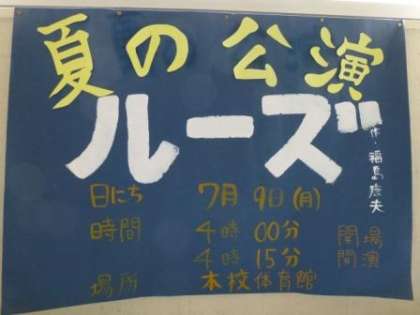 夏の公演
ルーズ
作・福島康夫
日にち 7月9日(月)
時間 4時00分 開場
4時15分 開演
場所 本校体育館